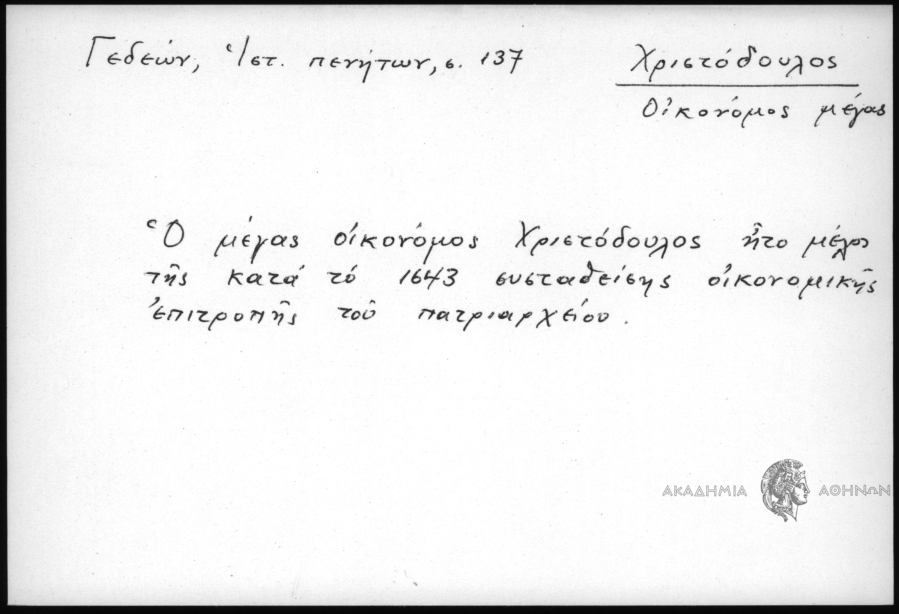 Γεδεών, Ἱστ. πενήτων, σ. 137
Χριστόδουλος
Οἰκονόμος μέγας
Ὁ μέγας οἰκονόμος Χριστόδουλος ἦτο μέλος
τῆς κατά τό 1643 συσταθείσης οἰκονομικῆς
ἐπιτροπῆς τοῦ πατριαρχείου.
ΑΚΑΔΗΜΙΑ ΑΘΗΝΩΝ